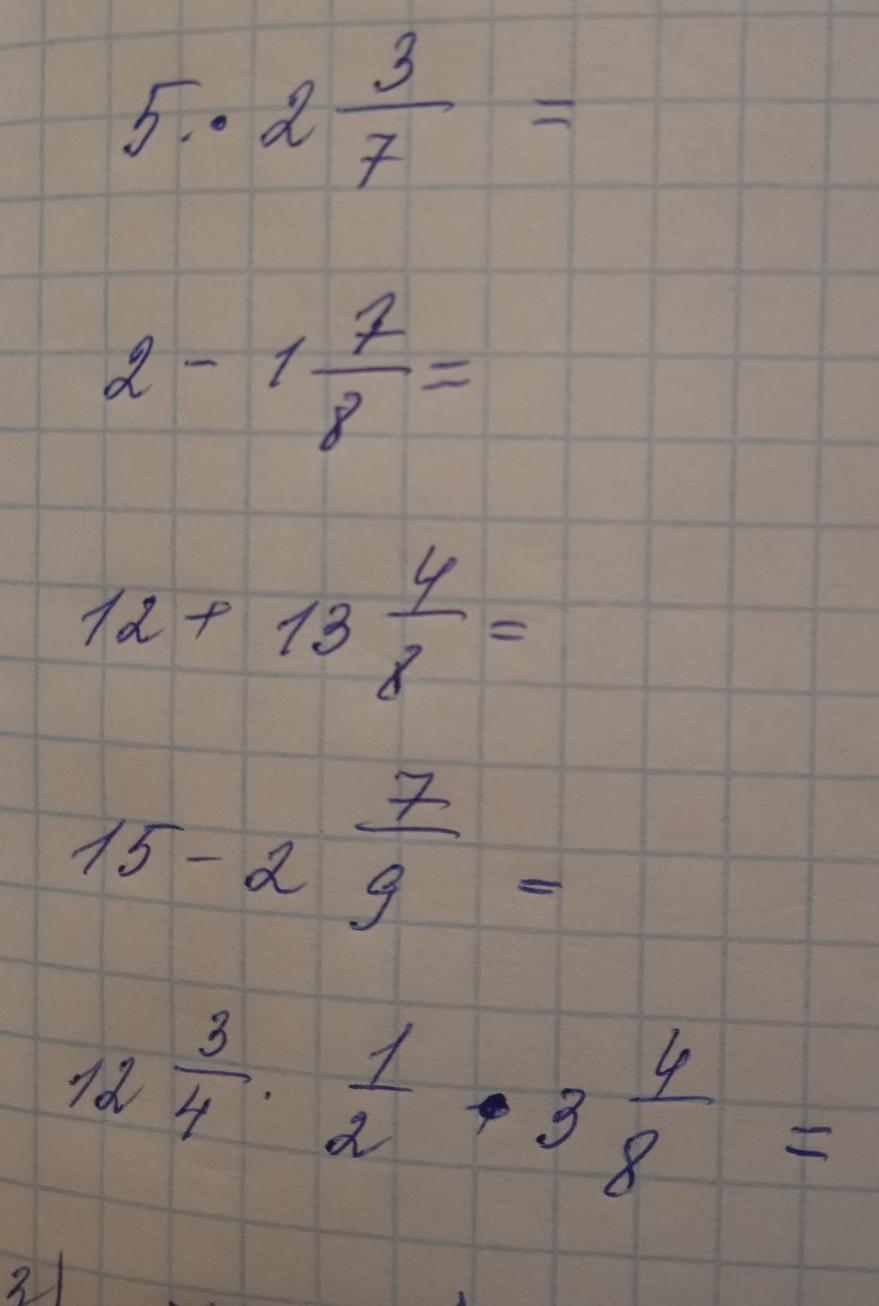 5 · 2 3/7 =
2 - 1 7/8 =
12 + 13 4/8 =
15 - 2 7/9 =
12 3/4 · 1/2 · 3 4/8 =